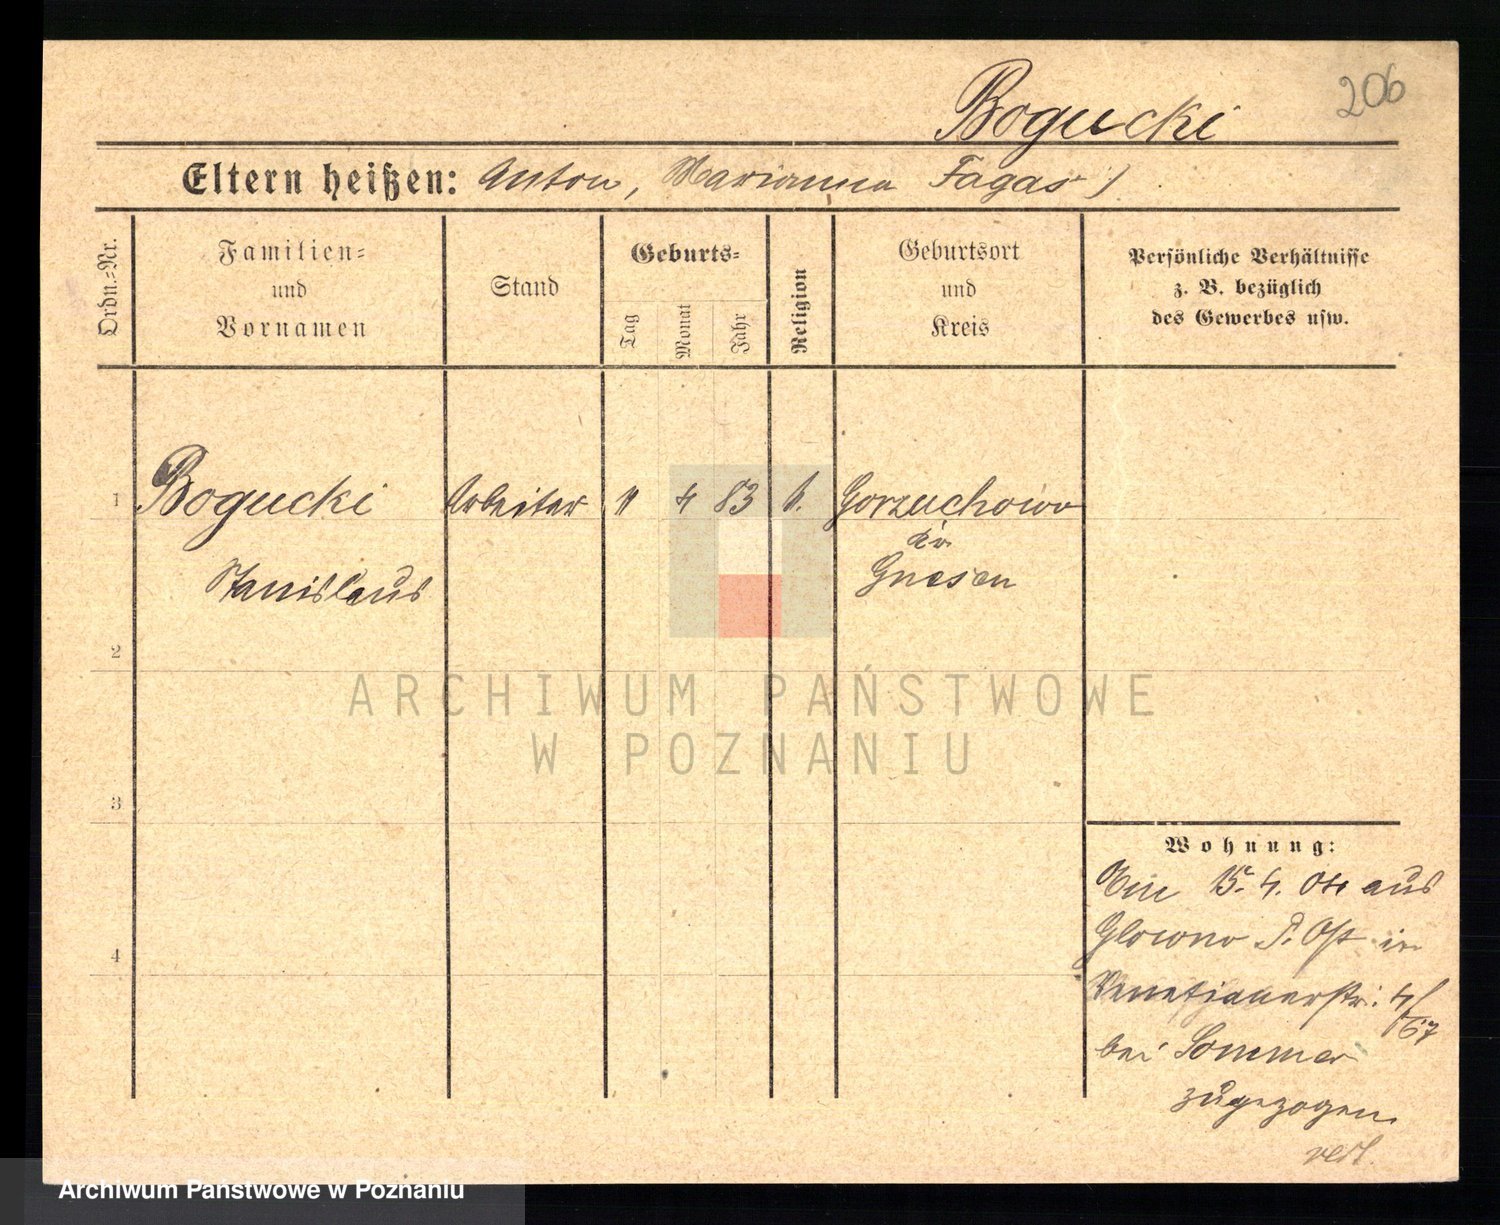 206
Bogucki
Eltern heißen: Anton, Marianna Fagas )
Ordn.=Nr.
Familien=
und
Vornamen
Stand
Geburts=
Tag
Monat
Jahr
Religion
Geburtsort
und
Kreis
Persönliche Verhältnisse
z. B. bezüglich
des Gewerbes usw.
1 Bogucki Arbeiter 4 83 k. Gorzuchowo
Kr.
Stanislaus Gnesen
2
3
4
Wohnung:
15. 4. 04 aus
Glowno P. Ost in
Venetianerstr. 4/67
bei Sommer
zugezogen.
ARCHIWUM PAŃSTWOWE
W POZNANIU
Archiwum Państwowe w Poznaniu